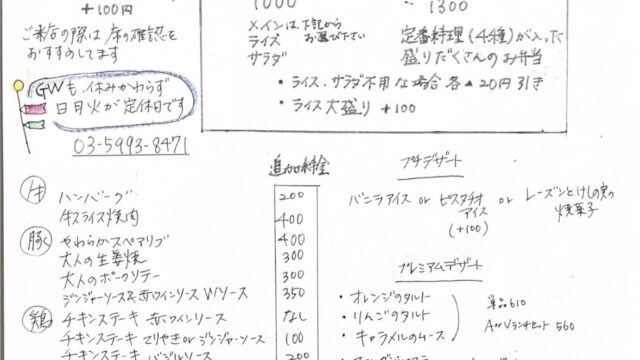 +100円
ご来店の際は席の確認を
おすすめしてます
GWも休みかわらず
日月火が定休日です
03-5993-8471
1000
メインは下記から
お選び下さい
ライス
サラダ
1300
定番料理(4種)が入った
盛りだくさんのお弁当
・ライス、サラダ不用な場合 各▲20円引き
・ライス大盛り +100
追加料金
牛 ハンバーグ 200
牛スライス焼肉 400
豚 やわらかスペアリブ 400
大人の生姜焼 300
大人のポークソテー 300
ジンジャーソース&赤ワインソース Wソース 350
鶏 チキンステーキ 赤ワインソース なし
チキンステーキ てりやき or ジンジャーソース 100
チキンステーキ バジルソース 200
プチデザート
バニラアイス or ピスタチオアイス(+100) or レーズンとけしの実の焼菓子
プレミアムデザート
・オレンジのタルト
・りんごのタルト
・キャラメルのムース
単品610
A or Vランチセット 560